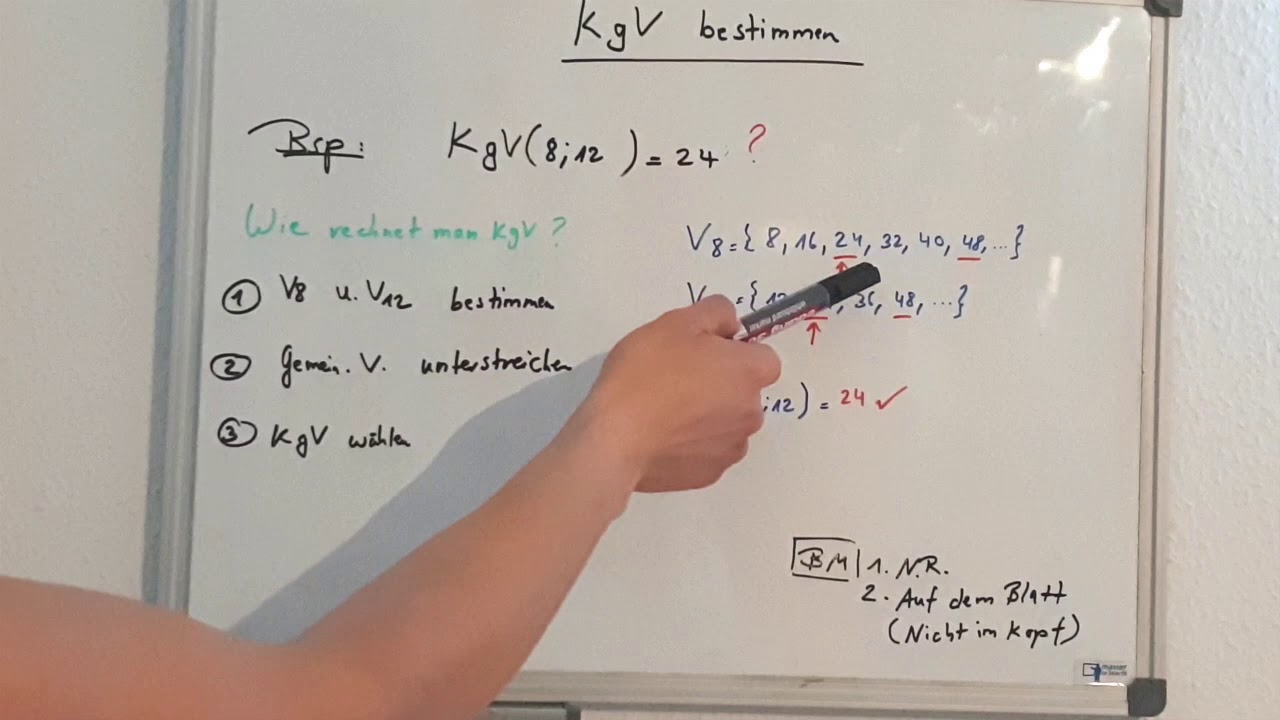 KgV bestimmen
Bsp: KgV(8;12) = 24 ?
Wie rechnet man KgV?
① V8 u. V12 bestimmen
② Gemein. V. unterstreichen
③ KgV wählen
V8={ 8, 16, 24, 32, 40, 48, ...}
V ={ 12, 36, 48, ...}
;12) = 24 ✓
BM 1. N.R.
2. Auf dem Blatt
(Nicht im Kopf)